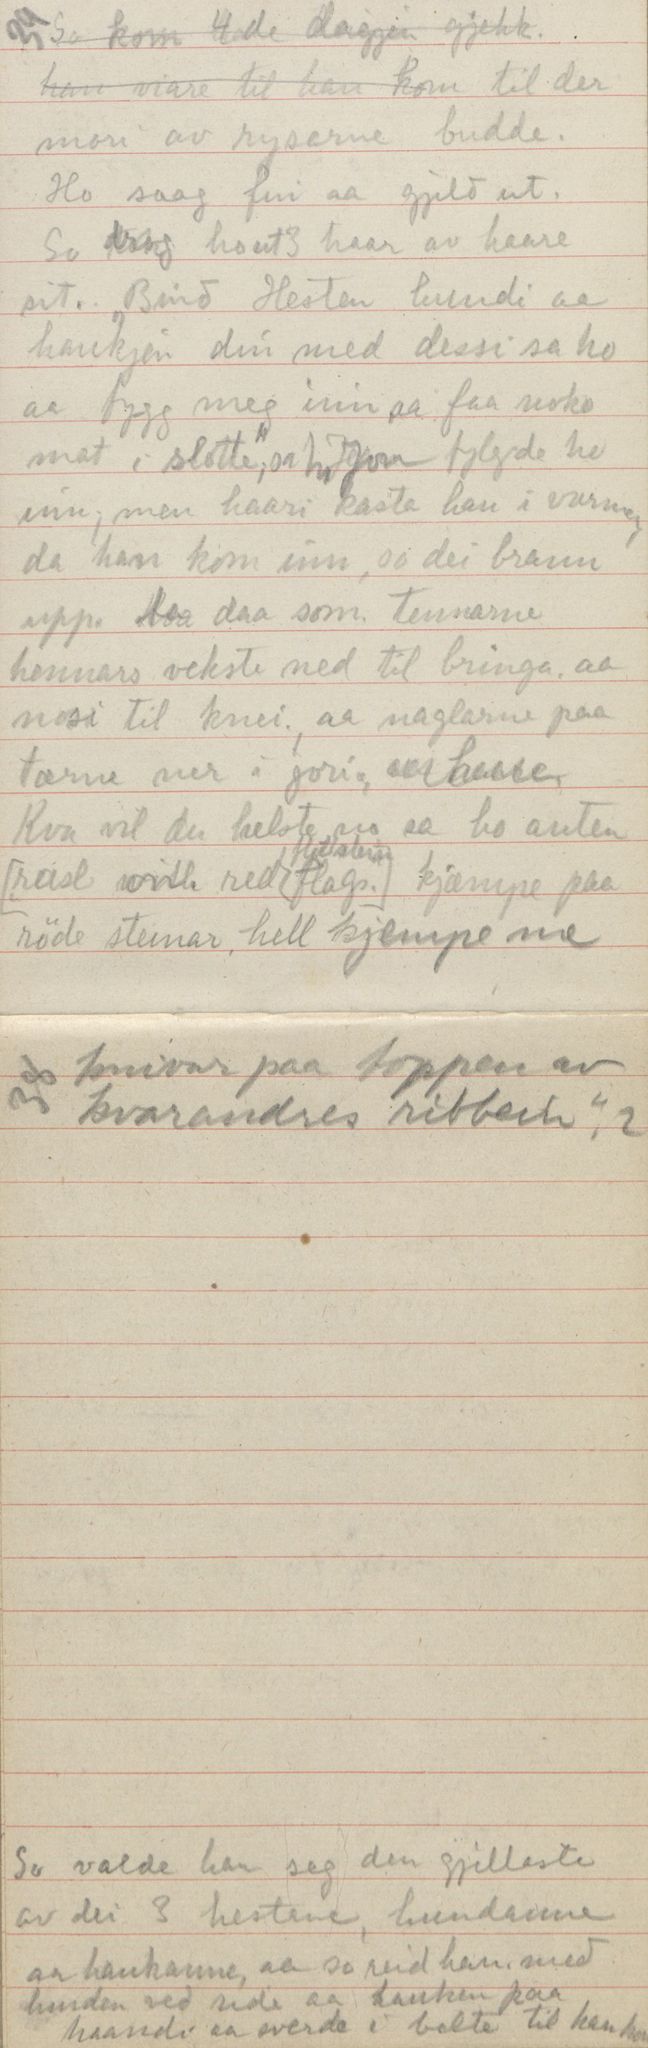 34 So kom 4de dagjen gjekk.
han viare til han kom til der
mori av rysarne budde.
Ho saag fin aa gjild ut.
So drog ho ut 3 haar av haare
sit. "Bind Hesten hundi aa
haukjen din med dessi sa ho
aa fygg meg inn aa faa noko
mat i slotte", sa ho. Jon fylgde ho
inn, men haari kasta han i varmen,
da han kom inn, so dei brann
upp. daa som. Tennarne
hennars vekste ned til bringa. aa
nosi til knei, aa naglarne paa
tærne ner i jori,
Kva vil du helste no sa ho anten
[rasl with red flags.] kjæmpe paa
röde steinar, hell kjempe me
35 knivar paa toppen av
kvarandres ribbein", ?
So valde han seg den gjillaste
av dei 3 hestane, hundanne
aa haukanne, aa so reid han med
hunden ved side aa hauken paa
haandi aa sverde i belte til han kom